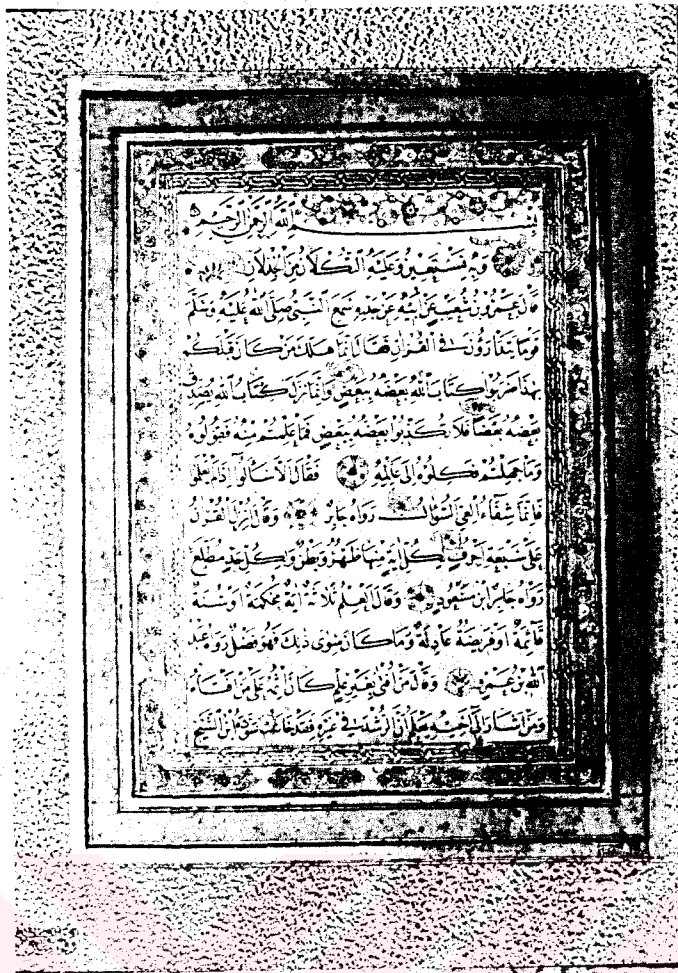 بسم الله الرحمن الرحيم
وَبِهِ نَسْتَعِينُ وَعَلَيْهِ التُّكْلَانُ
قَالَ عَمْرُو بْنُ شُعَيْبٍ عَنْ أَبِيهِ عَنْ جَدِّهِ سَمِعَ النَّبِيُّ صَلَّى اللهُ عَلَيْهِ وَسَلَّمَ
قَوْمًا يَتَدَارَؤُنَ فِي الْقُرْآنِ فَقَالَ إِنَّمَا هَلَكَ مَنْ كَانَ قَبْلَكُمْ
بِهَذَا ضَرَبُوا كِتَابَ اللهِ بَعْضَهُ بِبَعْضٍ وَإِنَّمَا نَزَلَ كِتَابُ اللهِ يُصَدِّقُ
بَعْضُهُ بَعْضًا فَلَا تُكَذِّبُوا بَعْضَهُ بِبَعْضٍ فَمَا عَلِمْتُمْ مِنْهُ فَقُولُوهُ
وَمَا جَهِلْتُمْ فَكِلُوهُ إِلَى عَالِمِهِ فَقَالَ أَلَا سَأَلُوا إِذْ لَمْ يَعْلَمُوا
فَإِنَّمَا شِفَاءُ الْعِيِّ السُّؤَالُ رَوَاهُ جَابِرٌ وَقَالَ أُنْزِلَ الْقُرْآنُ
عَلَى سَبْعَةِ أَحْرُفٍ لِكُلِّ آيَةٍ مِنْهَا ظَهْرٌ وَبَطْنٌ وَلِكُلِّ حَدٍّ مُطَّلَعٌ
رَوَاهُ ابْنُ مَسْعُودٍ وَقَالَ الْعِلْمُ ثَلَاثَةٌ آيَةٌ مُحْكَمَةٌ أَوْ سُنَّةٌ
قَائِمَةٌ أَوْ فَرِيضَةٌ عَادِلَةٌ وَمَا كَانَ سِوَى ذَلِكَ فَهُوَ فَضْلٌ رَوَاهُ عَبْدُ
اللهِ بْنُ عَمْرٍو وَقَالَ مَنْ أُفْتِيَ بِغَيْرِ عِلْمٍ كَانَ إِثْمُهُ عَلَى مَنْ أَفْتَاهُ
وَمَنْ أَشَارَ إِلَى أَخِيهِ يَعْلَمُ أَنَّ الرُّشْدَ فِي غَيْرِهِ فَقَدْ خَانَهُ